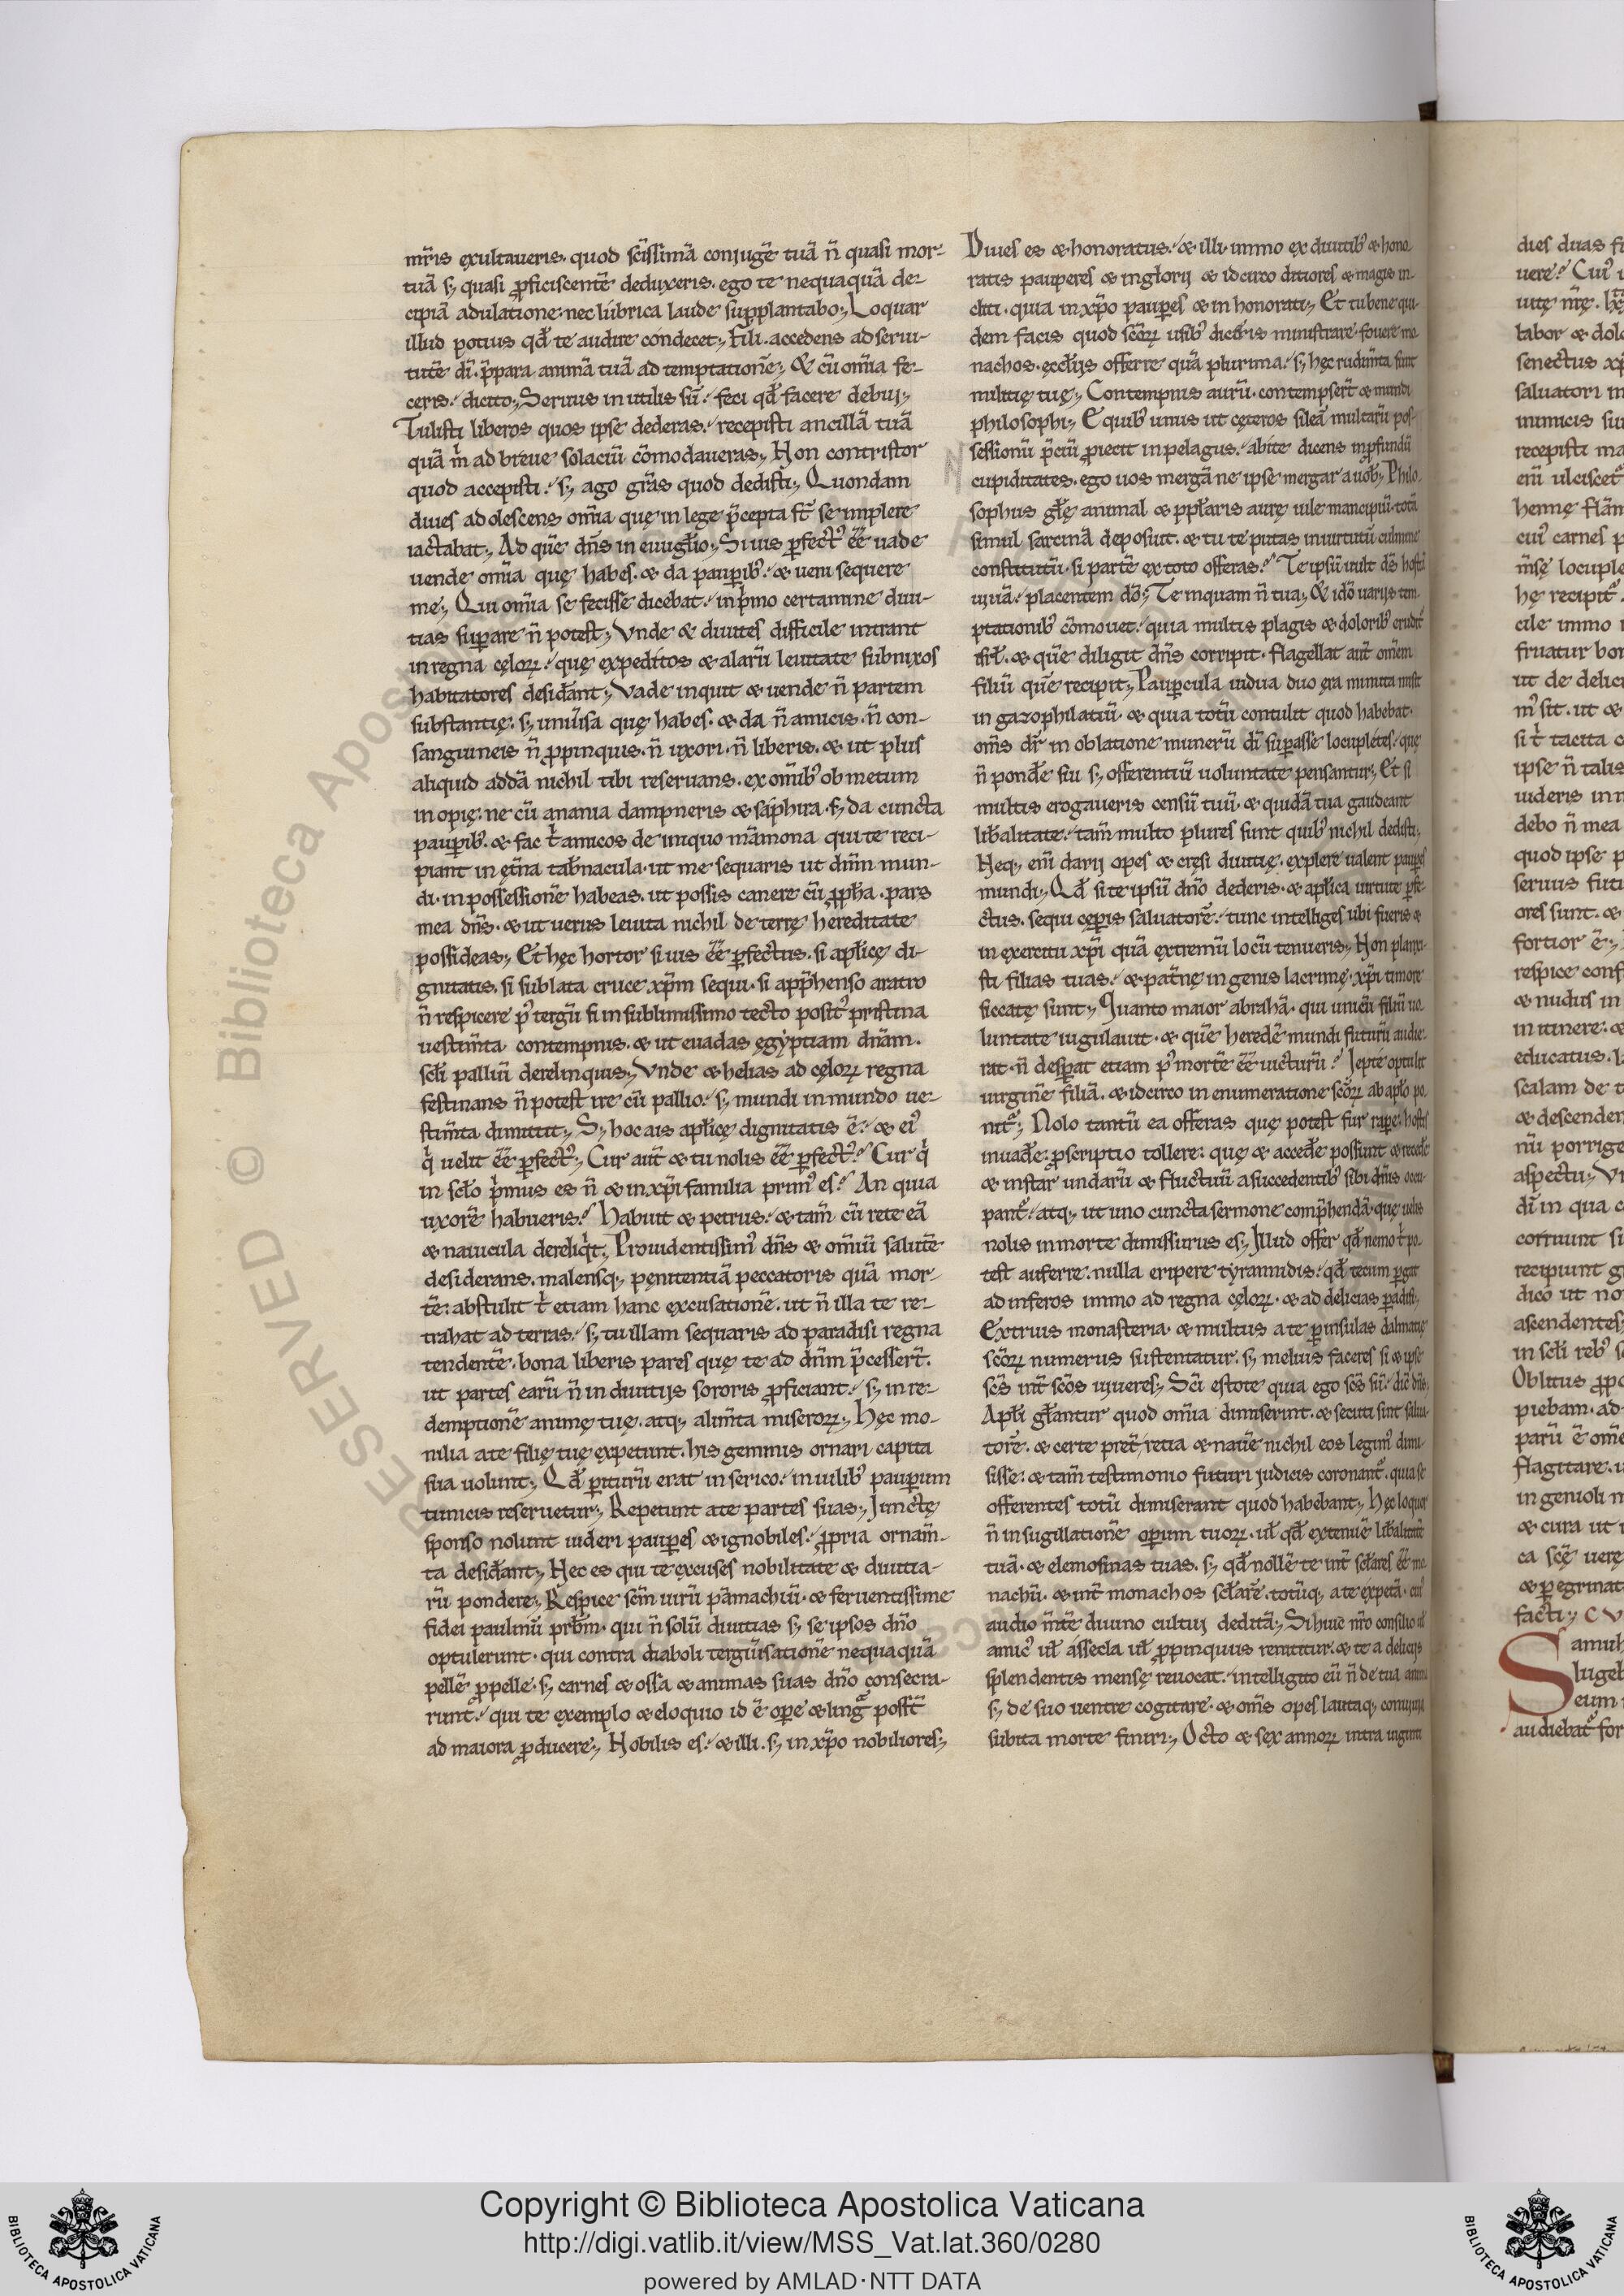 mr̃is exultaueris. quod sc̃issimã conjugẽ tuã ñ quasi mor-
tuã s; quasi ꝓficiscentẽ deduxeris. ego te nequaquã de-
cipiã adulatione: nec lubrica laude supplantabo; Loquar
illud potius qd̃ te audire condecet; Fili. accedens ad serui-
tutẽ dĩ. p̃para animã tuã ad temptationẽ; & cũ om̃ia fe-
ceris. dicito; Seruus inutilis sũ. feci qd̃ facere debui;
Tulisti liberos quos ipse dederas. recepisti ancillã tuã
quã m̃ ad breue solaciũ cõmodaueras; Non contristor
quod accepisti. s; ago gr̃as quod dedisti; Quondam
diues adolescens om̃ia quę in lege p̃cepta st̃ se implere
iactabat; Ad quẽ dñs in euuglĩo; Si uis ꝑfect᾽ ẽẽ uade
uende om̃ia quę habes. & da pauꝑib᾽. & ueni sequere
me; Qui om̃ia se fecisse dicebat. in p̃mo certamine diui-
tias suꝑare ñ potest; Vnde & diuites difficile intrant
in regna cęloꝝ. quę expeditos & alarũ leuitate subnixos
habitatores desidãnt; Vade inquit & uende ñ partem
substantię. s; uniũsa quę habes. & da ñ amicis. ñ con-
sanguineis ñ ꝓpinquis. ñ uxori. ñ liberis. & ut plus
aliquid addã nichil tibi reseruans. ex om̃ib᾽ ob metum
inopię: ne cũ anania dampneris & saphira. s; da cuncta
pauꝑib᾽. & fac t̃ amicos de iniquo mãmona qui te reci-
piant in ęt̃na tab̃nacula. ut me sequaris ut dñm mun-
di. in possessionẽ habeas. ut possis canere cũ ꝓph̃a. pars
mea dñs. & ut uerus leuita nichil de terrę hereditate
possideas; Et hęc hortor si uis ẽẽ ꝑfectus. si apl̃icę di-
gnitatis. si sublata cruce xp̃m sequi. si app̃henso aratro
ñ respicere p᾽ tergũ si in sublimissimo tecto posit᾽ pristina
uestim̃ta contempnis. & ut euadas ęgyptiam dñam.
scl̃i palliũ derelinquis; Vnde & helias ad cęloꝝ regna
festinans ñ potest ire cũ pallio. s; mundi in mundo ue-
stim̃ta dimittit; S; hoc ais apl̃icę dignitatis ẽ. & ei᾽
q̃ uelit ẽẽ ꝑfect᾽; Cur aut̃ & tu nolis ẽẽ ꝑfect᾽? Cur q̃
in scl̃o p̃mus es ñ & in xp̃i familia prim᾽ es? An quia
uxorẽ habueris? Habuit & petrus. & tam̃ cũ rete eã
& nauicula dereliq̃t; Prouidentissim᾽ dñs & om̃iũ salutẽ
desiderans. malensq; pęnitentiã peccatoris quã mor-
tẽ: abstulit t̃ etiam hanc excusationẽ. ut ñ illa te re-
trahat ad terras. s; tu illam sequaris ad paradisi regna
tendentẽ. bona liberis pares quę te ad dñm p̃cessert̃.
ut partes earũ ñ in diuitijs sororis ꝓficiant. s; in re-
demptionẽ animę tuę. atq; alim̃ta miseroꝝ; Hęc mo-
nilia a te filię tuę expetunt. his gemmis ornari capita
sua uolunt; Qd̃ ꝑiturũ erat in serico. in uilib᾽ pauꝑum
tunicis reseruetur; Repetunt a te partes suas; Junctę
sponso nolunt uideri pauꝑes & ignobiles. ꝓpria ornam̃-
ta desid̃ant; Nec es qui te excuses nobilitate & diuitia-
rũ pondere; Respice scm̃ uirũ pãmachiũ. & feruentissime
fidei paulinũ prb̃m. qui ñ solũ diuitias s; se ipsos dño
optulerunt. qui contra diaboli tergiũsationẽ nequaquã
pellẽ ꝓ pelle. s; carnes & ossa & animas suas dño consecra-
runt. qui te exemplo & eloquio id ẽ oꝑe & ling᷑ posst̃
ad maiora ꝓducere; Nobilis es. & illi. s; in xp̃o nobiliores;
Diues es & honoratus. & illi. immo ex diuitib᾽ & hono
ratis pauperes & inglorij & idcirco ditiores & magis in-
cliti. quia in xp̃o pauꝑes & in honorati; Et tu bene qui-
dem facis quod sc̃oꝝ usib᾽ diceris ministrare. fouere mo
nachos. ęccl̃ijs offerre quã plurima. s; hęc rudim̃ta sunt
militię tuę; Contempnis aurũ. contempsert̃ & mundi
philosophi; E quib᾽ unus ut cęteros sileã multarũ pos-
sessionũ p̃ciũ ꝓiecit in pelagus. abite dicens in ꝓfundũ
cupiditates. ego uos mergã ne ipse mergar a uob̃; Philo
sophus gl̃ę animal & ppl̃aris aurę uile mancipiũ. totã
simul sarcinã deposuit. & tu te putas in uirtutũ culmine
constitutũ. si partẽ ex toto offeras? Te ipsũ uult dñs hostiã
uiuã. placentem dõ; Te inquam ñ tua; & idõ uarijs tem
ptationib᾽ cõmouet. quia multis plagis & dolorib᾽ erudit᷑
isrl̃. & quẽ diligit dñs corripit. flagellat aut̃ om̃em
filiũ quẽ recipit; Pauꝑcula uidua duo ęra minuta misit
in gazophilatiũ. & quia totũ contulit quod habebat.
om̃s dr̃ in oblatione munerũ dĩ suꝑasse locupletes. quę
ñ pond̃e siu s; offerentiũ uoluntate pensantur; Et si
multis erogaueris censũ tuũ. & quidã tua gaudeant
lib̃alitate. tam̃ multo plures sunt quib᾽ nichil dedisti;
Neq; eni᷑ darij opes & cręsi diuitię. explere ualent pauꝑes
mundi; Qd̃ si te ipsũ dño dederis. & apl̃ica uirtute ꝑfe-
ctus. sequi cęꝑis saluatorẽ. tunc intelliges ubi fueris &
in exercitu xp̃i quã extremũ locũ tenueris; Non planxi-
sti filias tuas. & pat̃nę in genis lacrimę. xp̃i timore
siccatę sunt; Quanto maior abrahã. qui unicũ filiũ uo-
luntate iugulauit. & quẽ heredẽ mundi futurũ audie-
rat. ñ desꝑat etiam p᾽ mortẽ ẽẽ uicturũ? Iepte optulit
uirginẽ filiã. & idcirco in enumeratione sc̃oꝝ ab apl̃o po-
nit᷑; Nolo tantũ ea offeras quę potest fur rapere: hostis
inuad̃e: ꝓscriptio tollere: quę & acced̃e possunt & reced̃e
& instar undarũ & fluctuũ a succedentib᾽ sibi dñis occu-
pant᷑. atq; ut uno cuncta sermone comp̃hendã. quę uelis
nolis in morte dimissurus es; Illud offer qd̃ nemo t̃ po-
test auferre. nulla eripere tyrannidis. qd̃ tecum ꝑgat
ad inferos immo ad regna cęloꝝ. & ad delicias ꝑadisi;
Extruis monasteria. & multus a te ꝑ insulas dalmatię
sc̃oꝝ numerus sustentatur. s; melius faceres si & ipse
sc̃s int̃ sc̃os uiueres; Sc̃i estote quia ego sc̃s sũ. dic̃ dñs;
Apl̃i gl̃antur quod om̃ia dimiserint. & secuti sint salua-
torẽ. & certe pret̃ retia & nauẽ nichil eos legim᾽ dimi-
sisse: & tam̃ testimonio futuri judicis coronant᷑. quia se
offerentes totũ dimiserant quod habebant; Hęc loquor
ñ in sugillationẽ oꝑum tuoꝝ. ul̃ qd̃ extenuẽ lib̃alitatẽ
tuã. & elemosinas tuas. s; qd̃ nollẽ te int̃ scl̃ares ẽẽ mo
nachũ. & int̃ monachos scl̃arẽ. totũq; a te expetã. cui᾽
audio m̃tẽ diuino cultui deditã; Si huic nr̃o consilio ul̃
amic᾽ ul̃ assecla ul̃ ꝓpinquus renititur. & te a delicijs
splendentis mensę reuocat. intelligito eũ ñ de tua anima
s; de suo uentre cogitare. & om̃s opes lautaq; conuiuia
subita morte finiri; Octo & sex annoꝝ intra uiginti
dies duas
uere? Cui᾽
labor & dol
senectus xp̃
saluatori in
inimicis su
recepisti ma
eni᷑ ulciscet᷑
hennę flãm
cui᾽ carnes p
m̃sę locuple
hę recipit᷑.
cile immo
fruatur bon
ut de delici
m᾽ sit. ut &
si t̃ tacita
ipse ñ talis
uideris in
debo ñ mea
quod ipse p
seruus futu
ores sunt. &
fortior ẽ;
respice cons
& nudus in
in itinere. &
educatus.
scalam de t
& descenden
nũ porrige
aspectu;
dĩ in qua c
corruunt si
recipiunt
dico ut no
ascendentes
in scl̃i reb᾽
Oblitus ꝓpo
piebam. ad
parũ ẽ om̃
flagitare.
ingenioli
& cura ut
ca scę̃ uerę
& ꝑegrinat
facti;
Samuh
lugeb
eum
audiebat᷑ for
RESERVED © Biblioteca Apostolica Vaticana
Copyright © Biblioteca Apostolica Vaticana
http://digi.vatlib.it/view/MSS_Vat.lat.360/0280
powered by AMLAD·NTT DATA
BIBLIOTECA APOSTOLICA VATICANA
BIBLIOTECA APOSTOLICA VATICANA